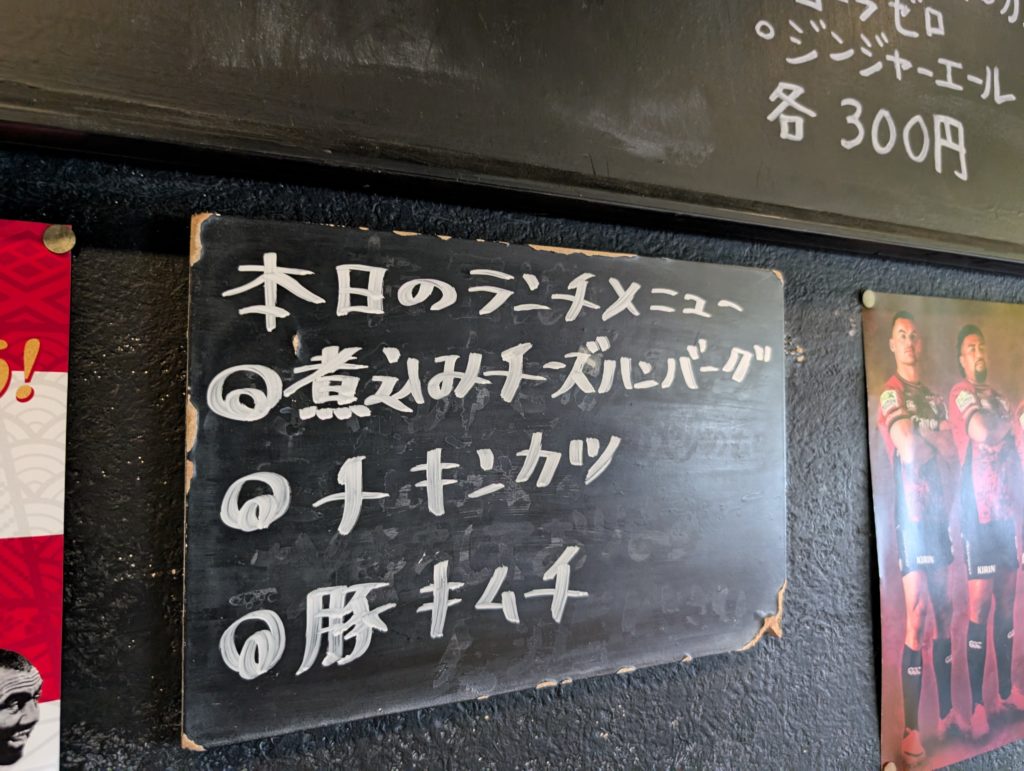 ゼロ
○ジンジャーエール
各 300円
本日のランチメニュー
◎煮込みチーズハンバーグ
◎チキンカツ
◎豚キムチ
!
KIRIN
KIRIN